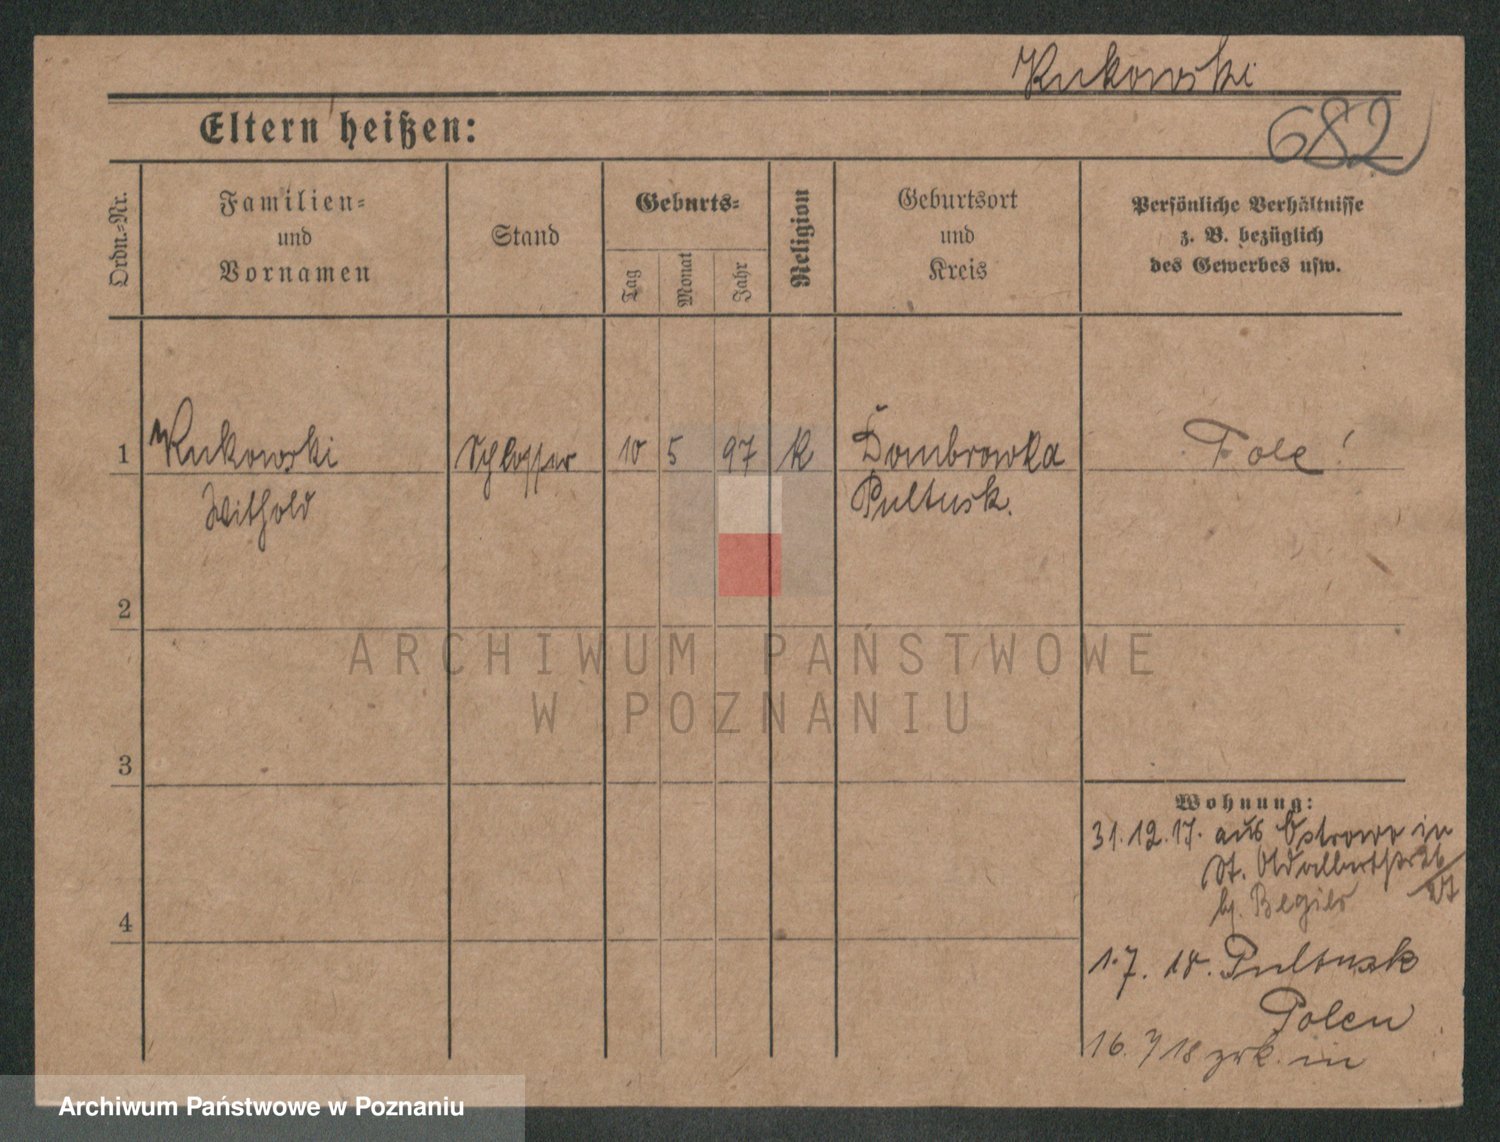 Kukowski
682
Eltern heißen:
Ordn.-Nr.
Familien-
und
Vornamen
Stand
Geburts-
Tag
Monat
Jahr
Religion
Geburtsort
und
Kreis
Persönliche Verhältnisse
z. B. bezüglich
des Gewerbes usw.
1 Kukowski Schlosser 10 5 97 K Dombrowka Pole!
Withold Pultusk.
2
3
4
ARCHIWUM PAŃSTWOWE
W POZNANIU
Wohnung:
31.12.17. aus Ostrowo in
St. 26
27
b.
1.7.18. Pultusk
Polen
16.7 18 zrk. in
Archiwum Państwowe w Poznaniu